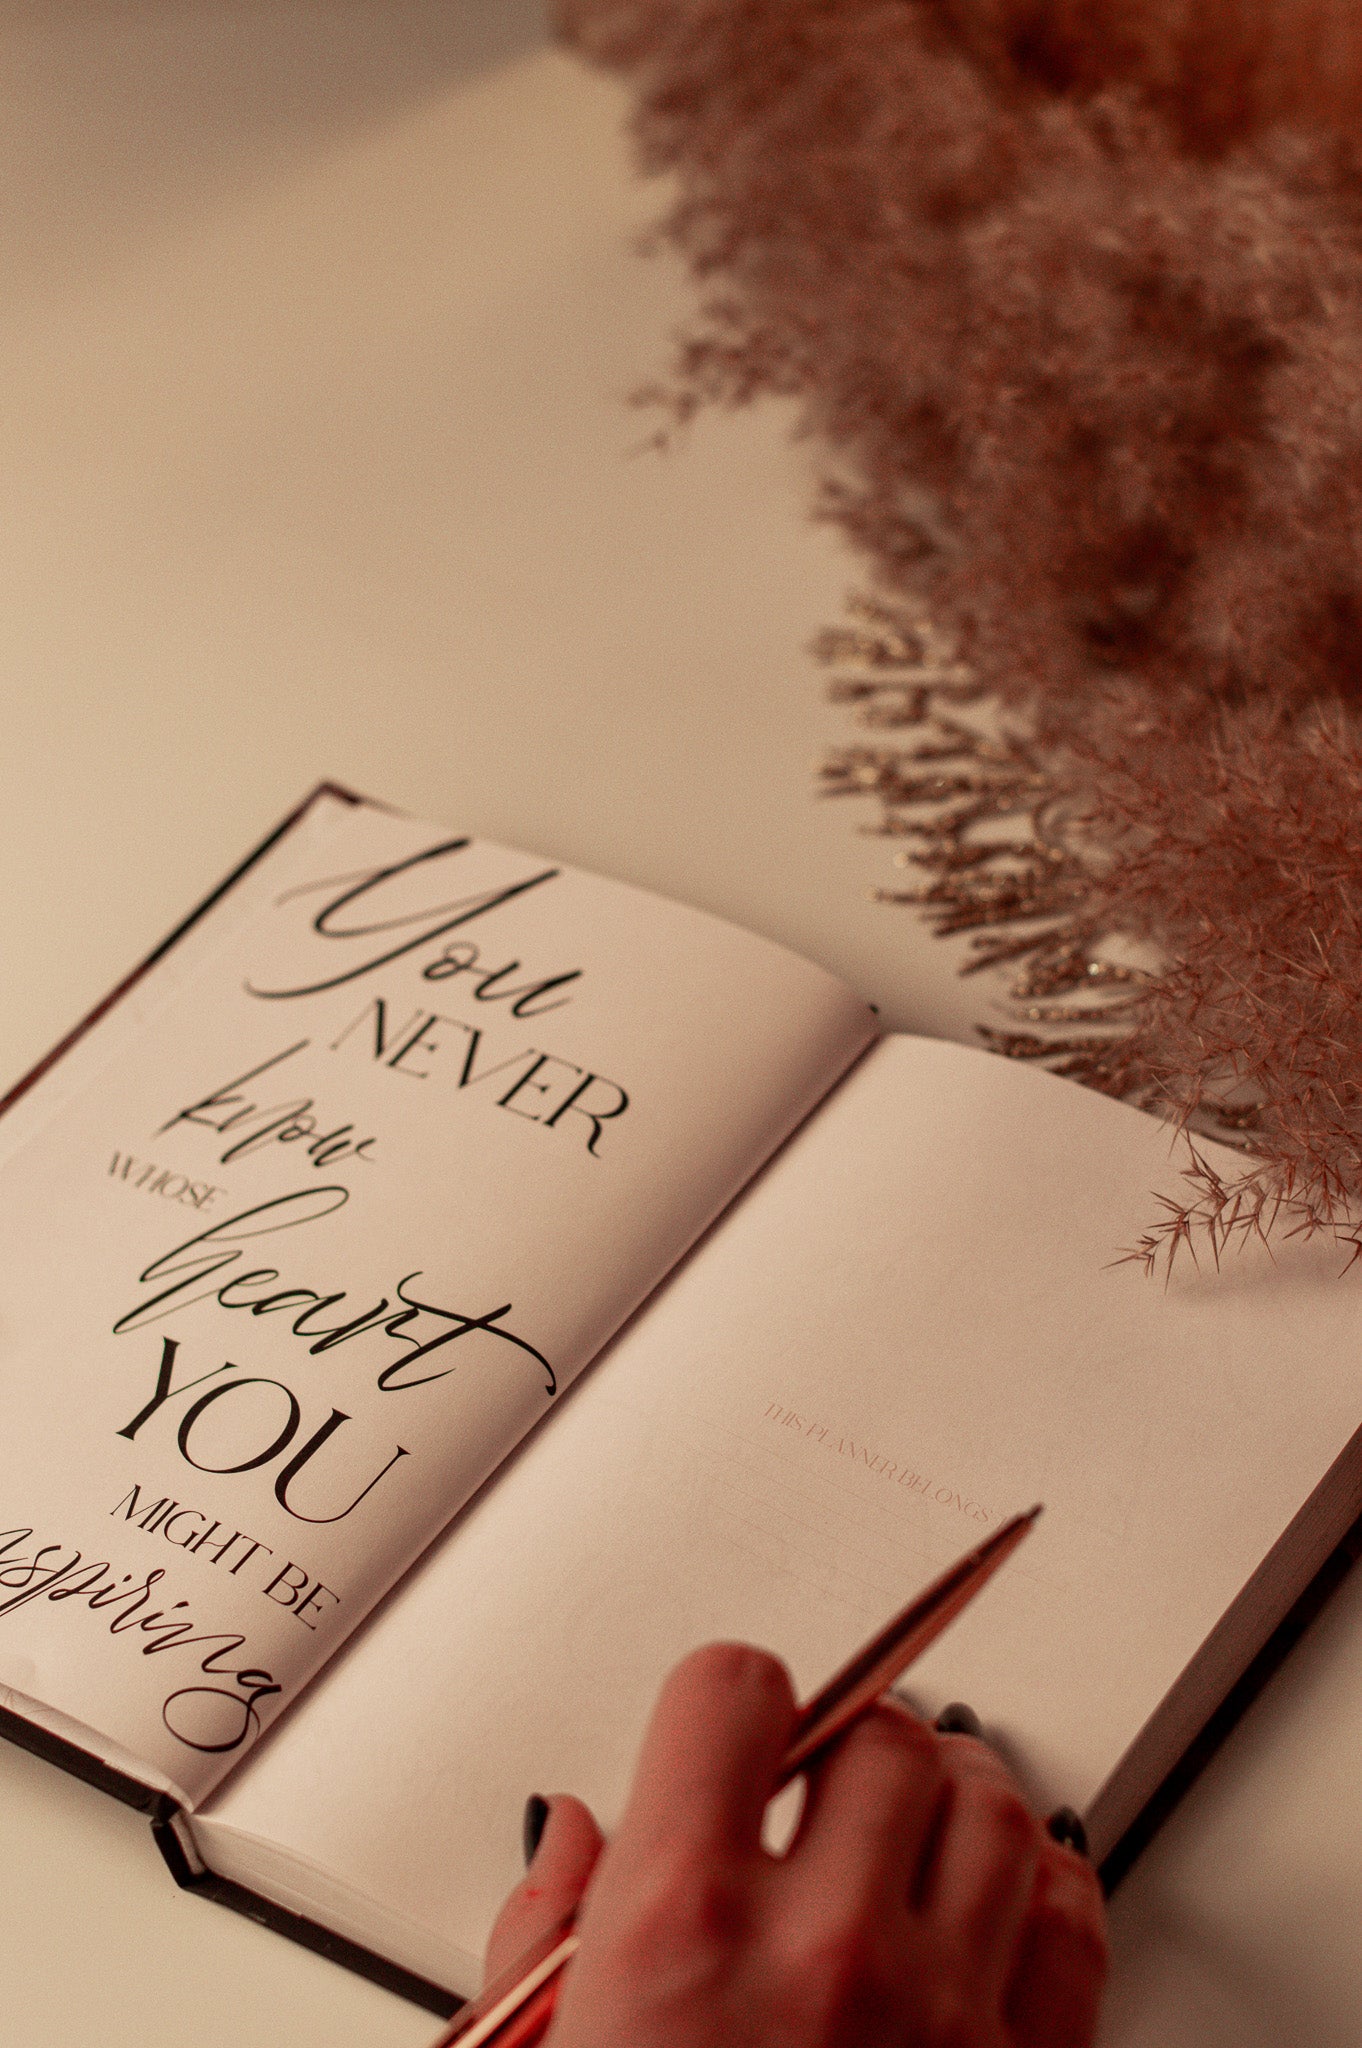 You
NEVER
know
WHOSE
heart
YOU
MIGHT BE
nspiring
THIS PLANNER BELONGS